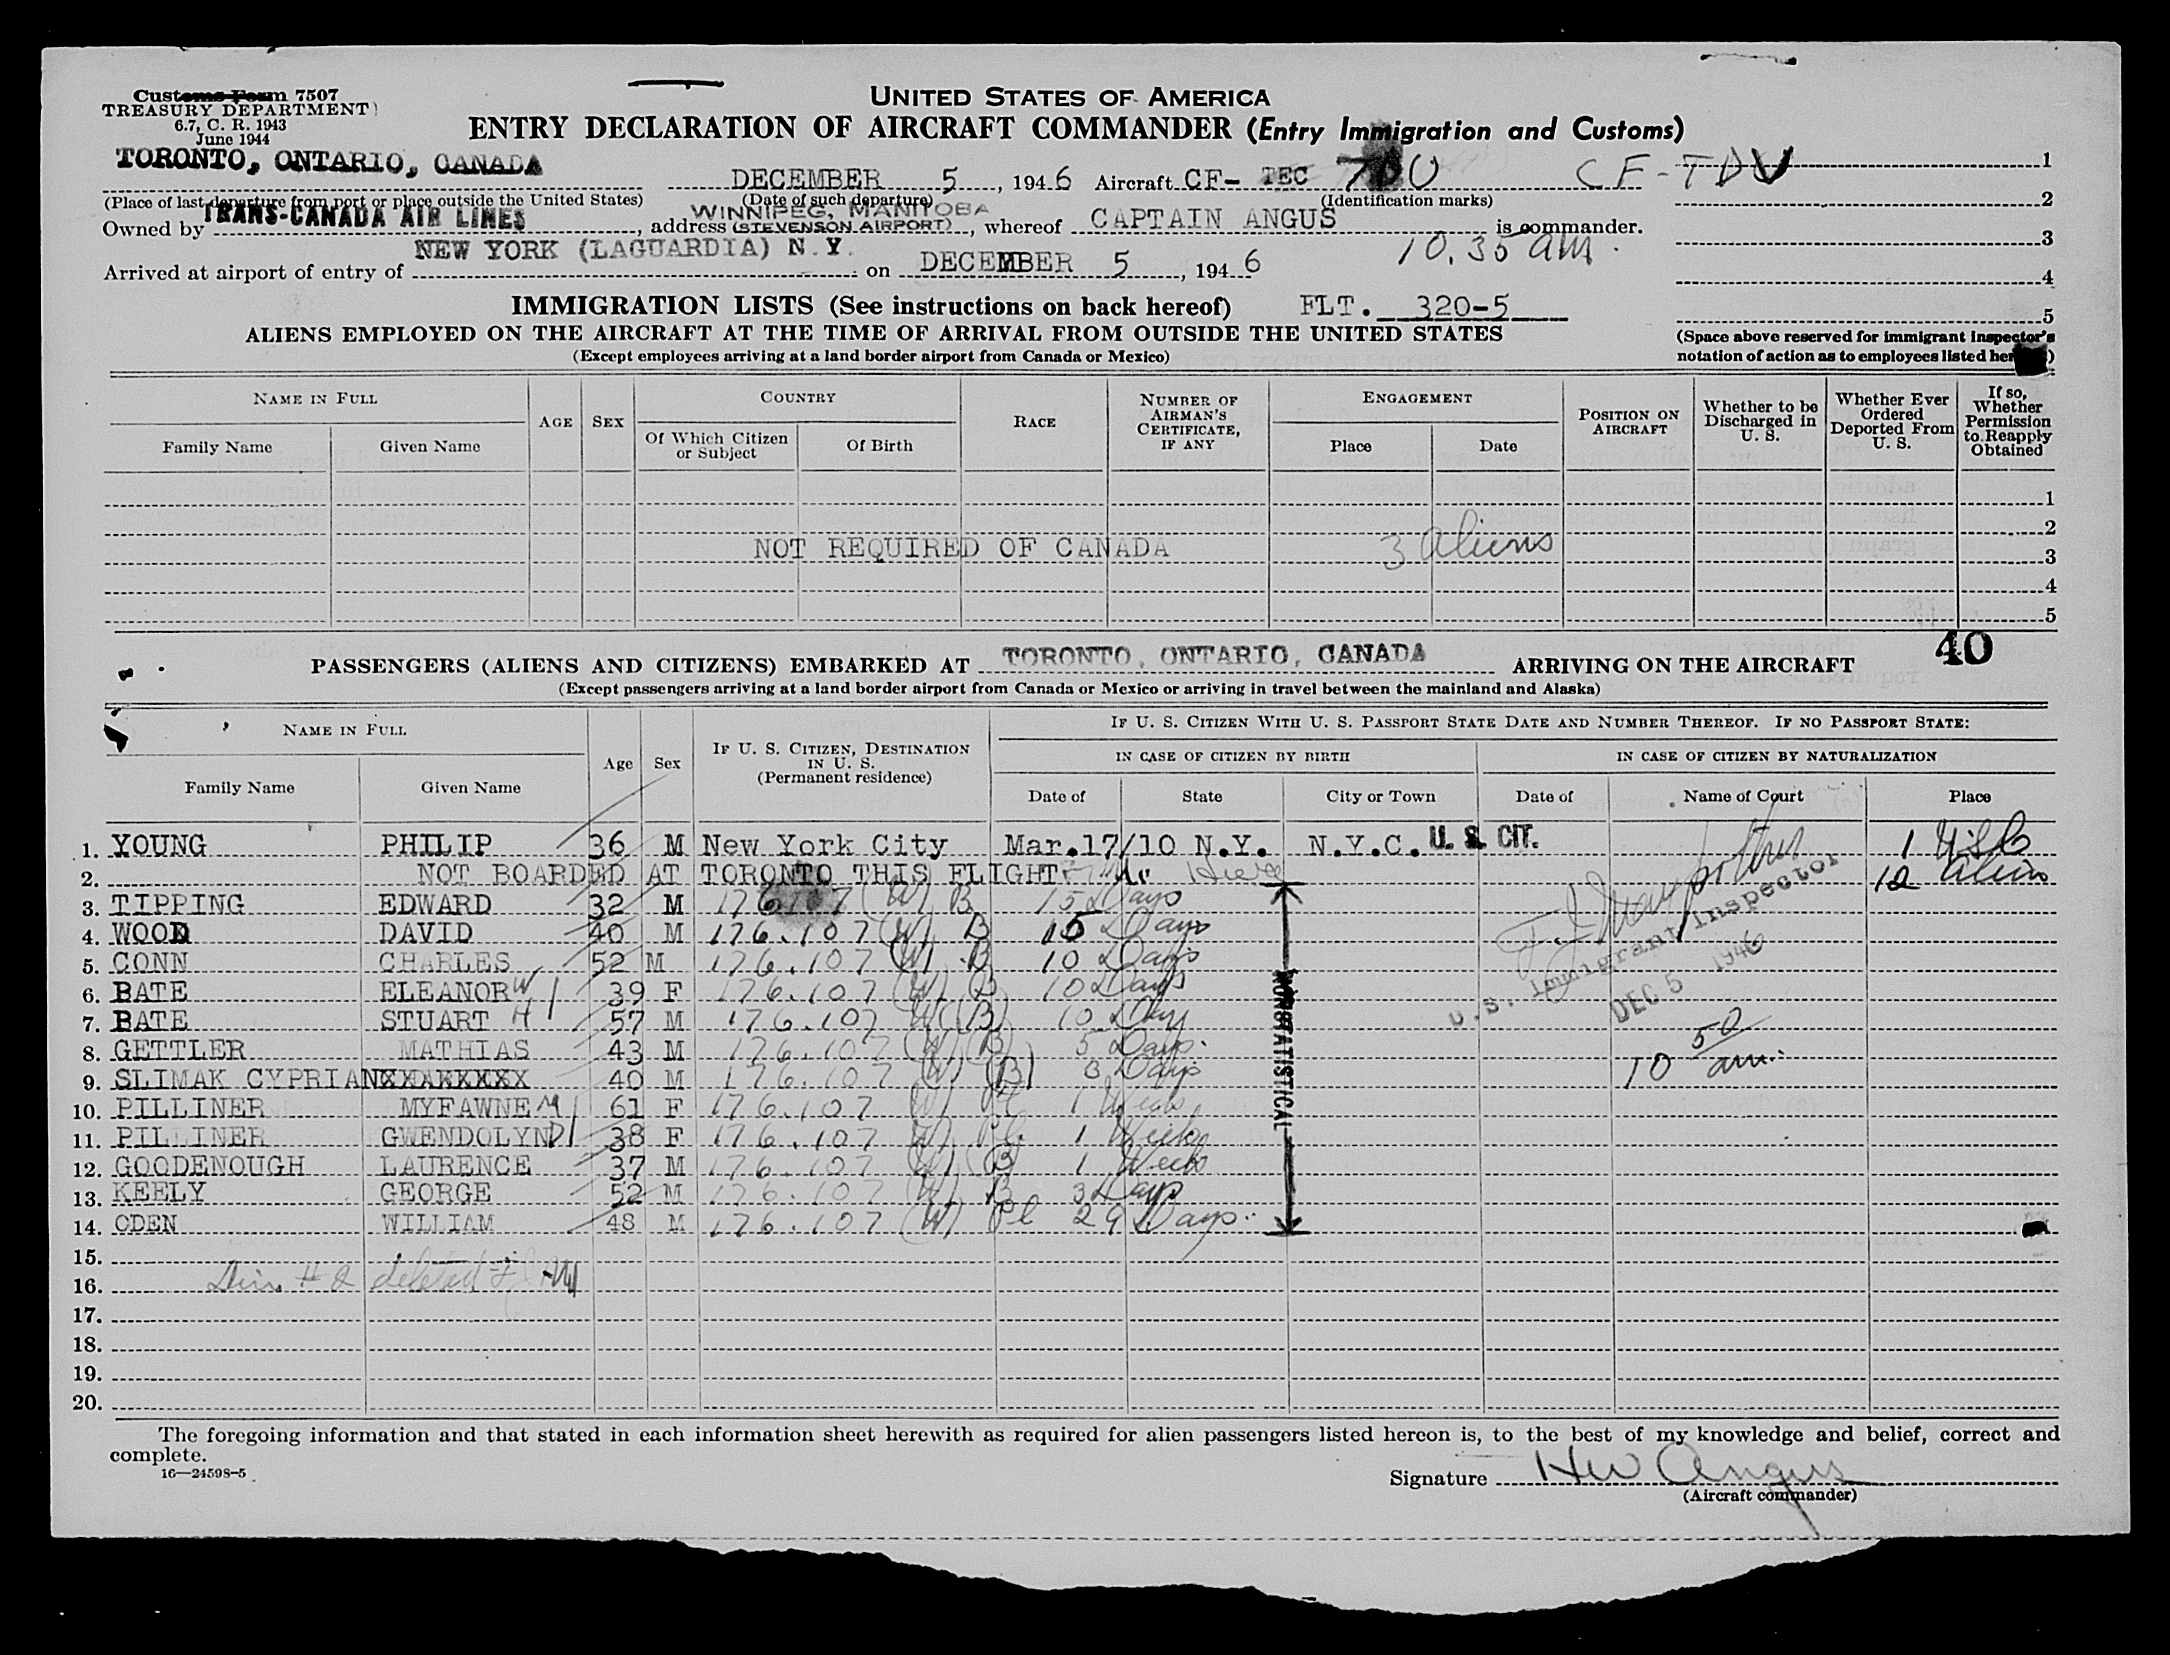 Customs Form 7507
TREASURY DEPARTMENT
6.7, C. R. 1943
June 1944
UNITED STATES OF AMERICA
ENTRY DECLARATION OF AIRCRAFT COMMANDER (Entry Immigration and Customs)
TORONTO, ONTARIO, CANADA DECEMBER 5, 1946 Aircraft CF- TDU CF-TDU 1
(Place of last departure from port or place outside the United States) (Date of such departure) (Identification marks) 2
WINNIPEG, MANITOBA
Owned by TRANS-CANADA AIR LINES, address (STEVENSON AIRPORT), whereof CAPTAIN ANGUS is commander.
3
Arrived at airport of entry of NEW YORK (LAGUARDIA) N.Y. on DECEMBER 5, 1946 10.35 am.
4
IMMIGRATION LISTS (See instructions on back hereof) FLT. 320-5
5
ALIENS EMPLOYED ON THE AIRCRAFT AT THE TIME OF ARRIVAL FROM OUTSIDE THE UNITED STATES
(Space above reserved for immigrant inspector's
(Except employees arriving at a land border airport from Canada or Mexico)
notation of action as to employees listed
NAME IN FULL
Family Name Given Name
AGE SEX
COUNTRY
Of Which Citizen or Subject Of Birth
RACE
NUMBER OF AIRMAN'S CERTIFICATE, IF ANY
ENGAGEMENT
Place Date
POSITION ON AIRCRAFT
Whether to be Discharged in U. S.
Whether Ever Ordered Deported From U. S.
If so, Whether Permission to Reapply Obtained
1
2
NOT REQUIRED OF CANADA 3 Aliens 3
4
5
PASSENGERS (ALIENS AND CITIZENS) EMBARKED AT TORONTO, ONTARIO, CANADA ARRIVING ON THE AIRCRAFT 40
(Except passengers arriving at a land border airport from Canada or Mexico or arriving in travel between the mainland and Alaska)
NAME IN FULL
Family Name Given Name
Age Sex
IF U. S. CITIZEN, DESTINATION IN U. S.
(Permanent residence)
IF U. S. CITIZEN WITH U. S. PASSPORT STATE DATE AND NUMBER THEREOF. IF NO PASSPORT STATE:
IN CASE OF CITIZEN BY BIRTH IN CASE OF CITIZEN BY NATURALIZATION
Date of State City or Town Date of Name of Court Place
1. YOUNG PHILIP 36 M New York City Mar.17/10 N.Y. N.Y.C. U. S. CIT. 1 USC
2. NOT BOARDED AT TORONTO THIS FLIGHT 12 Aliens
3. TIPPING EDWARD 32 M 176.107 (W) B 15 Days
4. WOOD DAVID 40 M 176.107 (W) B 15 Days
5. CONN CHARLES 52 M 176.107 (W) B 10 Days
6. BATE ELEANOR W 39 F 176.107 (W) B 10 Days
7. BATE STUART H 57 M 176.107 W (B) 10 Days
8. GETTLER MATHIAS 43 M 176.107 (W) (B) 5 Days.
9. SLIMAK CYPRIAN 40 M 176.107 (W) (B) 3 Days
10. PILLINER MYFAWNE M 61 F 176.107 (W) 1 Week
11. PILLINER GWENDOLYN D 38 F 176.107 (W) 1 Week
12. GOODENOUGH LAURENCE 37 M 176.107 (W) (B) 1 Week
13. KEELY GEORGE 52 M 176.107 (W) B 3 Days
14. ODEN WILLIAM 48 M 176.107 (W) Pl 29 Days.
NONSTATISTICAL
U.S. Immigrant Inspector
DEC 5 1946
10 50 am.
15.
16. Line # 2 deleted
17.
18.
19.
20.
The foregoing information and that stated in each information sheet herewith as required for alien passengers listed hereon is, to the best of my knowledge and belief, correct and
complete.
16—24598-5
Signature HW Angus
(Aircraft commander)